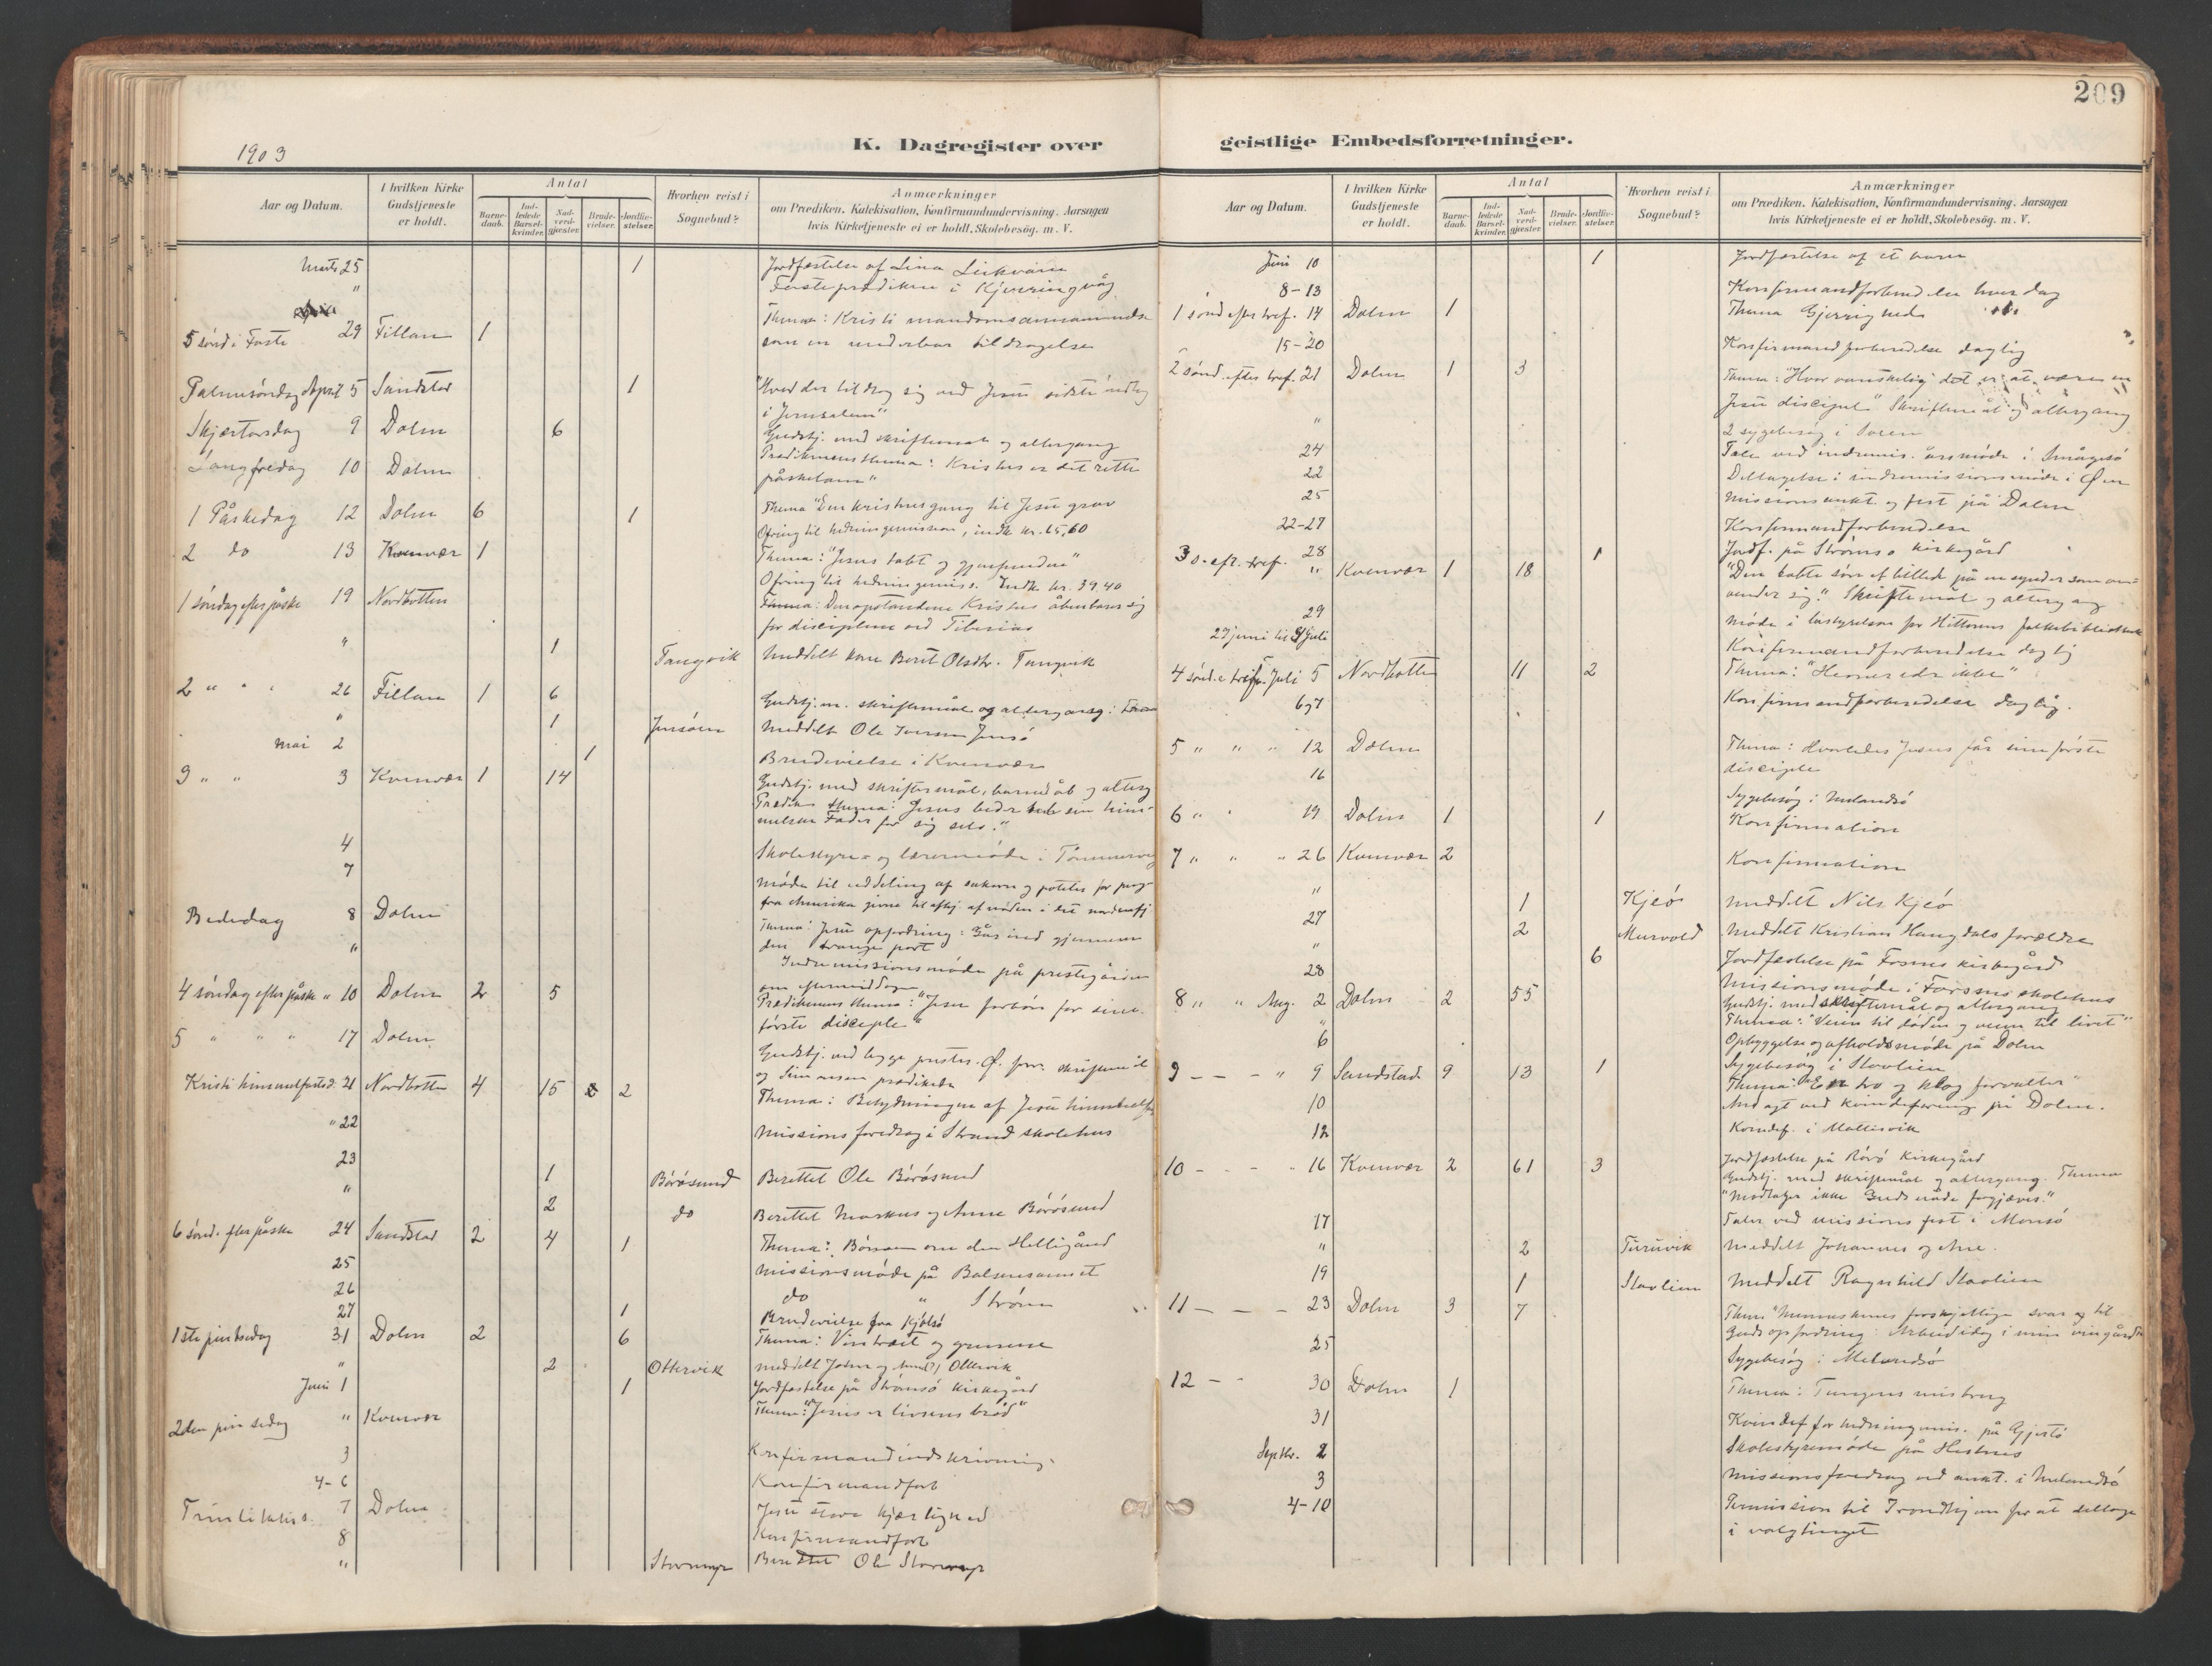 209
1903
K. Dagregister over geistlige Embedsforretninger.
Aar og Datum. I hvilken Kirke Gudstjeneste er holdt. Antal Barnedaab. Indledede Barselkvinder. Nadverdgjester. Brudevielser. Jordfæstelser. Hvorhen reist i Sognebud? Anmærkninger om Prædiken, Katekisation, Konfirmandundervisning. Aarsagen hvis Kirketjeneste ei er holdt, Skolebesøg. m. V.
Marts 25 1 Jordfæstelse af Lina
" Fasteprædiken i Kjerringvåg
5 sønd i Faste 29 Fillan 1 Thema: Kristi mandomsannammelse
som en underbar tildragelse
Palmesøndag April 5 Sandstad 1 "Hvad der tildrog sig ved Jesu sidste indtog
i Jerusalem"
Skjærtorsdag 9 Dolm 6 Gudstj. med skriftemål og altergang
Langfredag 10 Dolm Prædikenens thema: Kristus er det rette
påskelam"
1 Påskedag 12 Dolm 6 1 Thema "Den kristnes gang til Jesu grav
Ofring til hedningemission, indk kr. 65,60
2 do 13 Kvenvær 1 Thema: "Jesus tabt og gjenfunden"
Ofring til hedningemiss. Indk kr. 39.40
1 søndag efter påske 19 Nordbotten Thema: Den opstandne Kristus åbenbarer sig
for disciplene ved Tiberias
" 1 Tangvik Meddelt kone Berit Olsdtr. Tangvik
2 " " " 26 Fillan 1 6 Gudstj. m. skriftemål og altergang:
" 1 Jensøen Meddelt Ole Iversen Jensø
Mai 2 1 Brudevielse i Kvenvær
3 " " 3 Kvenvær 1 14 Gudstj. med skriftemål, barnedåb og alterg
Prædik thema: Jesus beder sin him-
melske Fader for sig selv."
4 Skolestyre- og lærermøde i Tømmervåg
7 Møde til uddeling af sukker og poteter for peng-
fra Amerika givne til afhj. af nøden i det nordenfj.
Bededag 8 Dolm Thema: Jesu opfordring: Går ind gjennem
den trange port
" Indremissionsmøde på prestegården
om eftermiddagen
4 søndag efter påske " 10 Dolm 2 5 Prædikenens thema: "Jesu forbøn for sine
første disciple"
5 " " " 17 Dolm Gudstj. ved
og prædikede
Kristi himmelfartsd. 21 Nordbotten 4 15 2 Thema: Betydningen af Jesu himmelfart
" 22 Missionsforedrag i Strand skolehus
23 1 Børøsund Berettet Ole Børøsund
" 2 do Berettet Markus og Anne Børøsund
6 sønd. efter påske 24 Sandstad 2 4 1 Thema: Bønnen om den Helligånd
25 Missionsmøde på
26 do " Strøm
27 1 Brudevielse fra
1ste pintsedag 31 Dolm 2 6 Thema: Vintræet og grenene
" 2 Ottervik meddelt Johan og Anne(?) Ottervik
Juni 1 1 Jordfæstelse på Strømsø kirkegård
2den pinsedag " Kvenvær Thema: "Jesus er livsens brød"
3 Konfirmandindskrivning.
4-6 Konfirmandforb
Trinitatis s. 7 Dolm Jesu store kjærlighed
8 Konfirmandforb
" Stormyr Berettet Ole Stormyr
Aar og Datum. I hvilken Kirke Gudstjeneste er holdt. Antal Barnedaab. Indledede Barselkvinder. Nadverdgjester. Brudevielser. Jordfæstelser. Hvorhen reist i Sognebud? Anmærkninger om Prædiken, Katekisation, Konfirmandundervisning. Aarsagen hvis Kirketjeneste ei er holdt, Skolebesøg. m. V.
Juni 10 1 Jordfæstelse af et barn
8-13 Konfirmandforberedelse hver dag
1 sønd efter tref. 14 Dolm 1 Thema Gjerrighed
15-20 Konfirmandforberedelse daglig
2 sønd. efter tref. 21 Dolm 1 3 Thema: "Hvor vanskelig det er at være en
Jesu discipel" Skriftemål og altergang
" 2 sygebesøg i
24 Tale ved indremis. årsmøde i Småge
22 Deltagelse i indremissionsmøde i Øen
25 Missionsaukt. og fest på Dolm
22-27 Konfirmandforberedelse
28 1 Jordf. på Strømsø kirkegård
3 s. eft. tref. " Kvenvær 1 18 "Den tabte søn et billede på en synder som om-
vender sig." Skriftemål og altergang
29 Møde i bestyrelsen for Hitterens folkebibliothek
29 juni til 4 Juli Konfirmandforberedelse daglig
4 sønd. e tref. Juli 5 Nordbotten 11 2 Thema:
6 og 7 Konfirmandforberedelse daglig.
5 " " " 12 Dolm Thema: Hvorledes Jesus får sine første
disciple
16 Sygebesøg i Melandsø
6 " " 19 Dolm 1 1 Konfirmation
7 " " " 26 Kvenvær 2 Konfirmation
" 1 Kjeø meddelt Nils Kjeø
27 2 Murvold meddelt Kristian Haugdals forældre
" 6 Jordfæstelse på Forsnes kirkegård
28 Missionsmøde i Forsnes skolehus
8 " " Aug. 2 Dolm 2 55 Gudstj. med skriftemål og altergang
Thema: "Veien til døden og veien til livet"
" Opbyggelse og afholdsmøde på Dolm
6 Sygebesøg i Stavlien
9 - - - " 9 Sandstad 9 13 1 Thema: "En tro og klog forvalter"
10 Andagt ved kvindeforening på Dolm.
12 Kvindef. i
10 - - - " 16 Kvenvær 2 61 3 Jordfæstelse på kirkegård
Gudstj. med skriftemål og altergang. Thema
"Modtager ikke Guds nåde forgjæves."
17 Taler ved missionsfest i
" 2 Turuvik meddelt Johannes og Ane.
19 1 Stavlien Meddelt Ragnhild Stavlien
11 - - - 23 Dolm 3 7 Them "Menneskenes forskjellige svar til
Guds opfordring: Arbeid idag i min vingård"
25 Sygebesøg i Melandsø
12 - - 30 Dolm 1 Thema: Tungens misbrug
31 Kvindef for hedningemis. på
Septbr. 2 Skolestyremøde på Hestnes
3 Missionsforedrag ved aukt. i Melandsø
4-10 Permission til Trondhjem for at deltage
i valgtinget